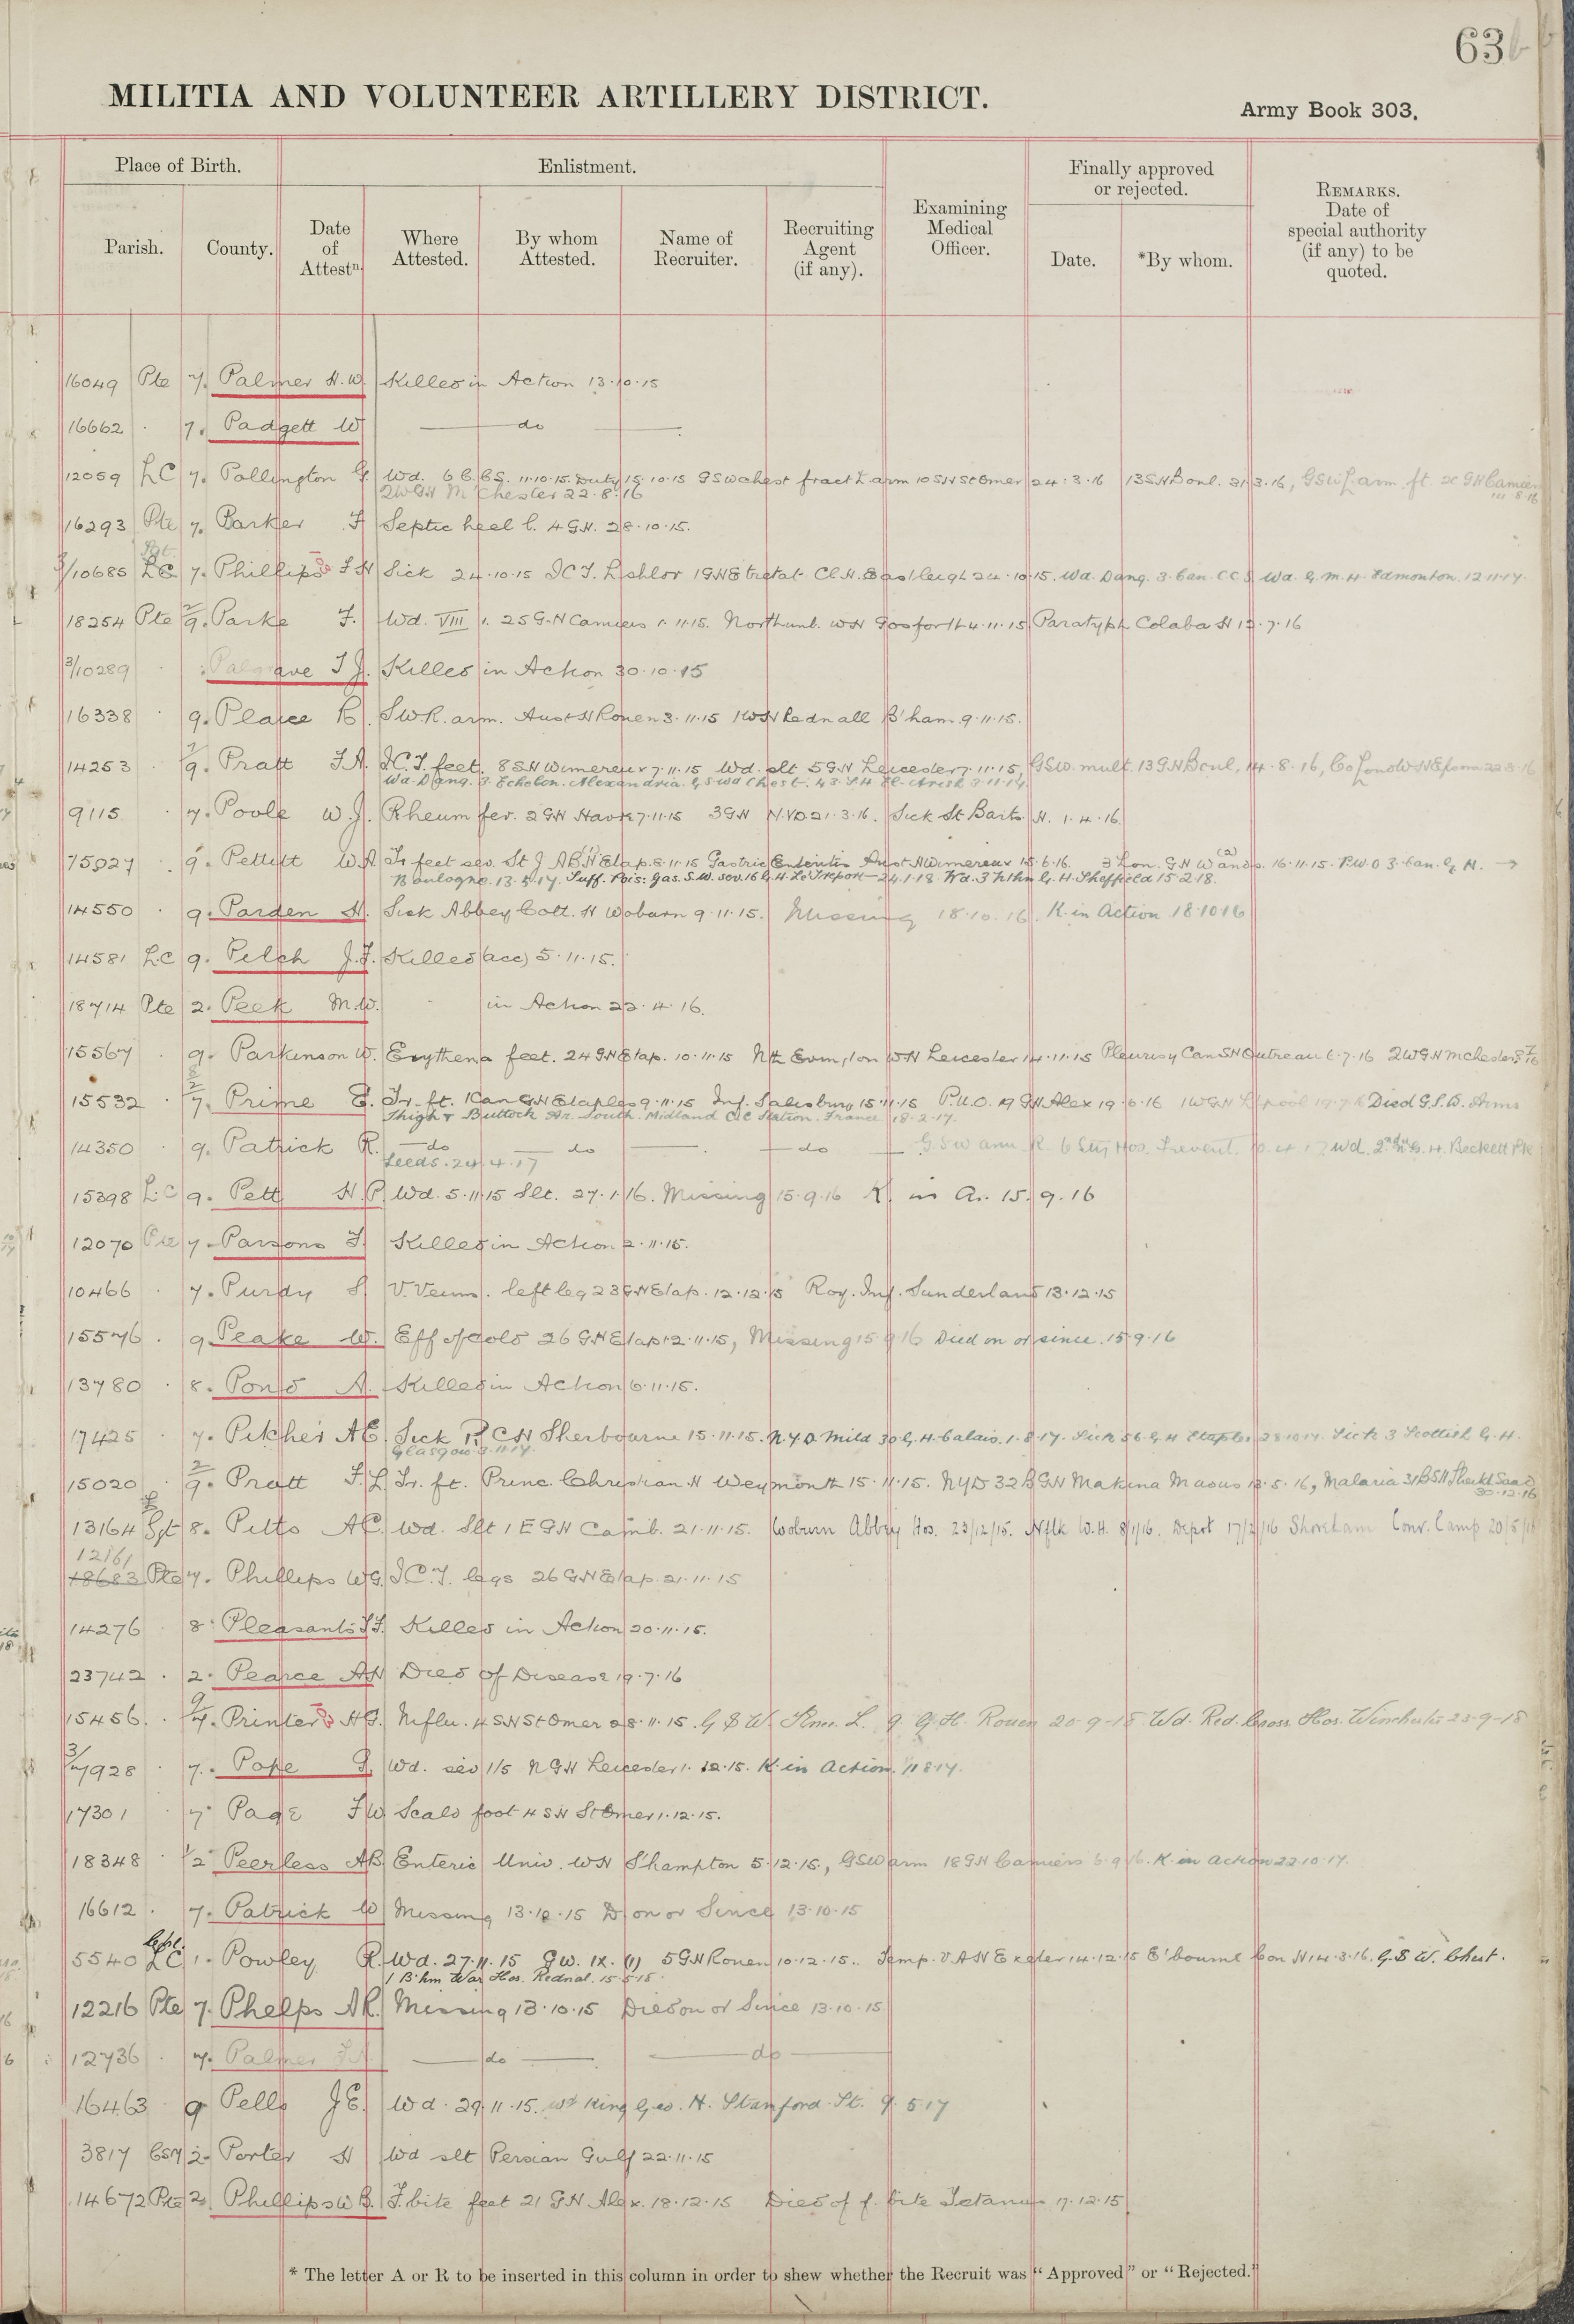 63
MILITIA AND VOLUNTEER ARTILLERY DISTRICT.
Army Book 303.
Place of Birth.
Enlistment.
Finally approved or rejected.
Parish.
County.
Date of Attestn.
Where Attested.
By whom Attested.
Name of Recruiter.
Recruiting Agent (if any).
Examining Medical Officer.
Date.
*By whom.
REMARKS. Date of special authority (if any) to be quoted.
16049 Pte 7. Palmer H.W. Killed in Action 13.10.15
16662 . 7. Padgett W — do —
12059 LC 7. Pollington G. Wd. 6 C.C.S. 11.10.15. Duty 15.10.15 GSW chest fract L arm 10 SH St Omer 24.3.16 13 SH Boul. 31.3.16, GSW L arm ft. 20 GH Camiers
2WGH M'Chester 22.8.16
16293 Pte 7. Parker F Septic heel l. 4 G.H. 28.10.15.
3/10685 LC 7. Phillips F H Sick 24.10.15 ICT. L 1 GH Etretat Cl H. Eastleigh 24.10.15. Wd. Dang. 3 Can. CCS Wd. G.M.H. Edmonton. 12.11.17.
Sgt.
18254 Pte 2/9. Parke F. Wd. VIII 1. 25 G.H Camiers 1.11.15. Northumb. WH Gosforth 4.11.15 Paratyph Colaba H 12.7.16
3/10289 . Palgrave T J. Killed in Action 30.10.15
16338 . 9. Place R. SW R. arm. Aust H Rouen 3.11.15 1WH Rednall B'ham. 9.11.15.
14253 9. Pratt F.A. I.C.T. feet. 8 SH Wimereux 7.11.15 Wd. slt 5 GH Leicester 7.11.15, GSW. mult. 13 GH Boul. 14.8.16, Co Lond W H Epsom 22.8.16
Wd. Dang. 3 Echelon. Alexandria. G S Wd Chest. 43 S H El-Arish 3.11.17.
9115 . 7. Poole W.J. Rheum fev. 2 GH Havre 7.11.15 3 GH N.YD 21.3.16. Sick St Barts. H. 1.4.16
75927 . 9. Pettitt W.A. Tr feet sev. St J ABH Etap. 8.11.15 Gastric Enteritis Aust H Wimereux 15.6.16. 3 Lon. G H Wands. 16.11.15. P.U.O 3 Can. G H. →
Boulogne. 13.5.17. Suff. Pois: Gas. S.W. sev. 16 G.H. Le Treport 24.1.18. Wd. 3 Nthn G. H. Sheffield 15.2.18.
14550 9. Parden H. Sick Abbey Cott. H Woburn 9.11.15. Missing 18.10.16. K. in Action 18.10.16
14581 L.C 9. Pelch J.F. Killed (acc) 5.11.15.
18714 Pte 2. Peek M.W. . in Action 22.4.16.
15567 . 9. Parkinson W. Erythema feet. 24 GH Etap. 10.11.15 Nth Evington WH Leicester 14.11.15 Pleurisy Can SH Outreau 6.7.16 2WGH Mchester
15532 . 7. Prime E. Tr. ft. 1 Can GH Etaples 9.11.15 Inf. Salisbury 15.11.15 P.U.O. 19 GH Alex 19.6.16 1WGH L'pool 19.7.16 Died G.S.W. Arms
Thigh & Buttock Av. South. Midland C.C Station. France 18.2.17.
14350 9. Patrick R. — do — do — do — G.S.W arm R. 6 Sty Hos. Frevent. wd. 2nd N. G. H. Beckett Pk
Leeds. 24.4.17
15398 L.C 9. Pett H.P. Wd. 5.11.15 Slt. 27.1.16. Missing 15.9.16 K. in A. 15.9.16
12070 Pte 7. Parsons F. Killed in Action 2.11.15.
10466 . 7. Purdy S V. Veins. left leg 23 GH Etap. 12.12.15 Roy. Inf. Sunderland 13.12.15
15576 . 9. Peake W. Eff of cold 26 GH Etap 12.11.15, Missing 15.9.16 Died on or since. 15.9.16
13780 . 8. Pond A. Killed in Action 6.11.15.
17425 . 7. Pilcher A E. Sick R C H Sherbourne 15.11.15. N.Y.D. Mild 30 G.H. Calais. 1.8.17. Sick 56 G H Etaples 28.10.17. Sick 3 Scottish G.H.
Glasgow 3.11.17.
15020 2/9. Pratt F.L. Tr. ft. Princ. Christian H Weymouth 15.11.15. NYD 32 BGH Makina Masus 13.5.16, Malaria 31 BSH Sheikh Saad
30.12.16
13164 Sgt 8. Pitts A C. Wd. Slt 1 E GH Camb. 21.11.15. Woburn Abbey Hos. 23/12/15. Nflk W.H. 8/1/16. Depot 17/2/16 Shoreham Conv. Camp 20/5/16
12161
18683 Pte 7. Phillips W G. I C.T. legs 26 GH Etap. 21.11.15
14276 . 8 Pleasants T.F. Killed in Action 20.11.15.
23742 . 2. Pearce A H Died of Disease 19.7.16
15456. . 7. Printer H G. Influ. 4 SH St Omer 28.11.15. G S W. Knee L. 9 G.H. Rouen 20-9-18 Wd. Red Cross Hos. Winchester 23-9-18
3/7928 . 7. Pope G. Wd. sev 1/5 N GH Leicester 1.12.15. K. in Action. 1/18.17.
17301 . 7. Page F W Scald foot 4 SH St Omer 1.12.15.
18348 . 1/2 Peerless A B Enteric Univ. WH S'hampton 5.12.15., GSW arm 18 GH Camiers 6.9.16. K. in action 22.10.17.
16612 . 7. Patrick W Missing 13.10.15 D on or Since 13.10.15
5540 LC 1. Powley R. Wd. 27.11.15 G W. IX. (1) 5 GH Rouen 10.12.15. Temp. V A H Exeter 14.12.15 E'bourne Con H 14.3.16. G.S W. Chest.
1 B'hm War Hos. Rednal. 15.5.18.
12216 Pte 7. Phelps A R. Missing 13.10.15 Died on or Since 13.10.15
12736 . 7. Palmer — do — — do —
16463 9 Pells J E. Wd. 29.11.15. Wd King Geo. H. Stamford. St. 9.5.17
3817 CSM 2. Porter H Wd slt Persian Gulf 22.11.15
14672 Pte 2. Phillips W G. F. bite feet 21 GH Alex. 18.12.15 Died of f. bite Tetanus 17.12.15
* The letter A or R to be inserted in this column in order to shew whether the Recruit was "Approved" or "Rejected."